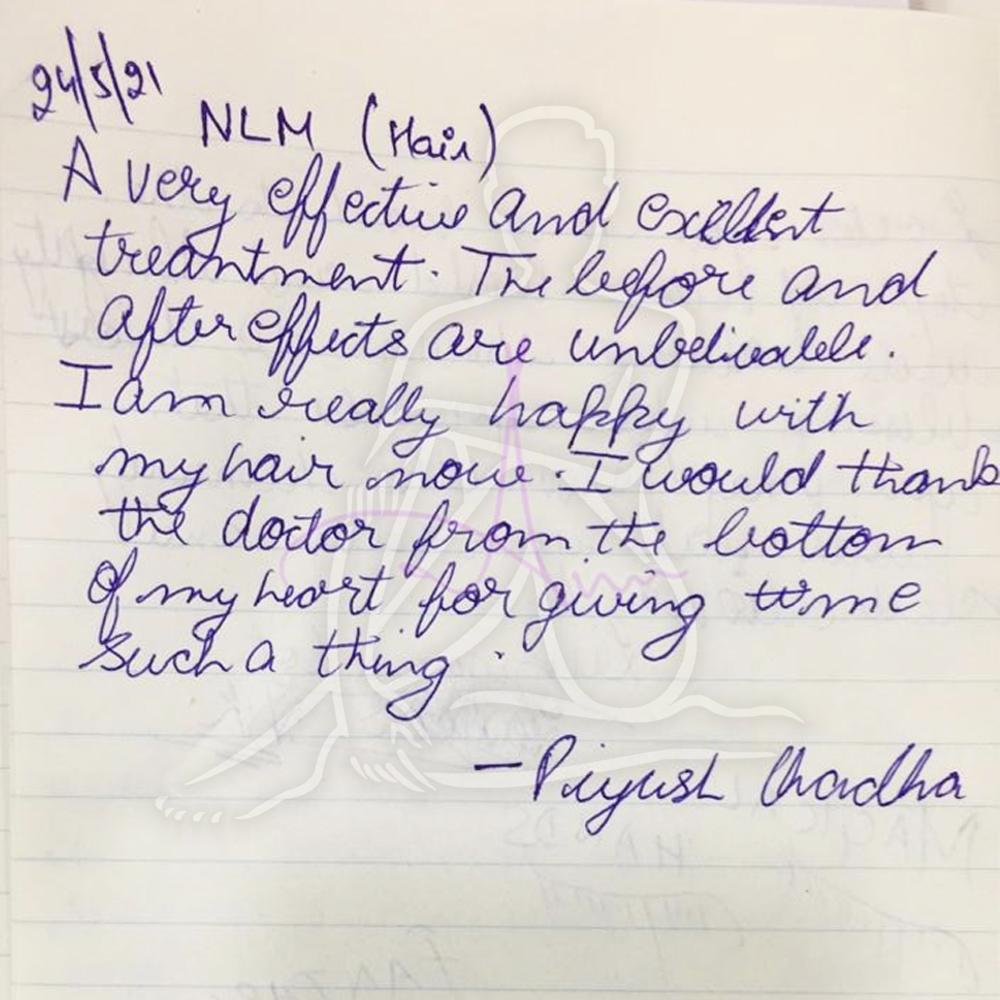 24/5/21
NLM (Hair)
A very effective and excellent
treantment. The before and
after effects are unbelivable.
I am really happy with
my hair now. I would thank
the doctor from the bottom
of my heart for giving me
such a thing.
- Piyush Chadha